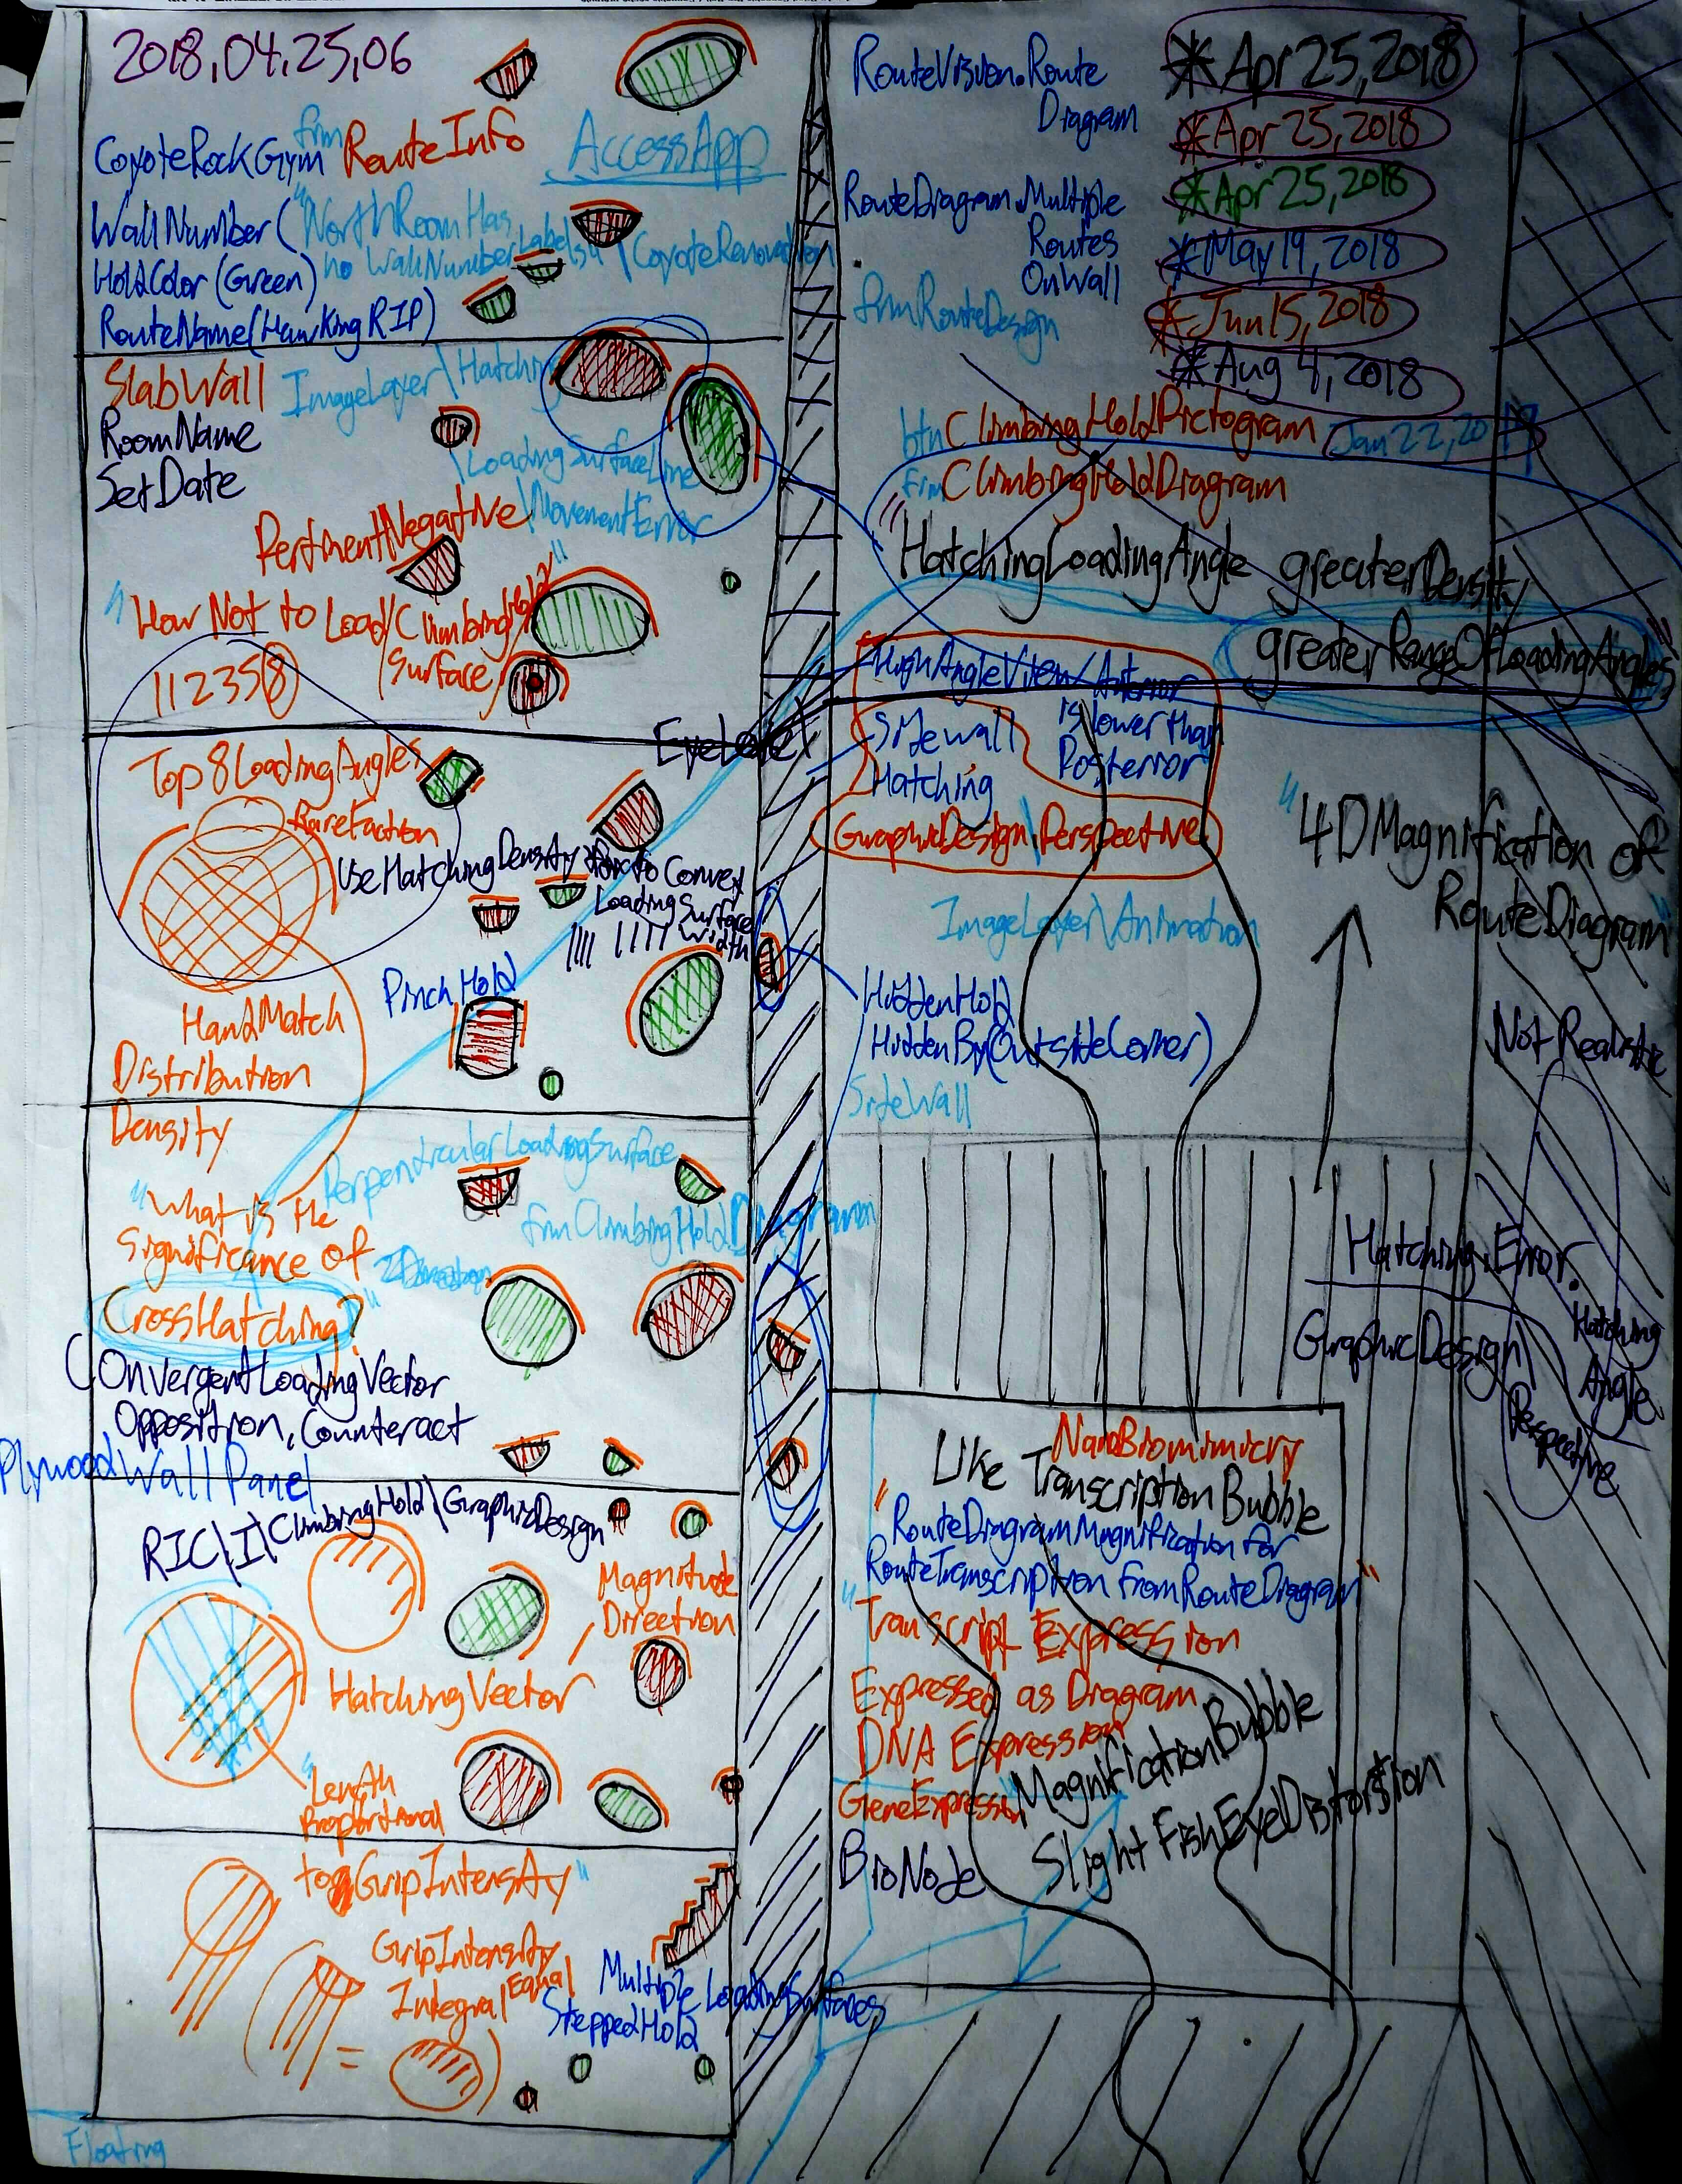 2018.04.25.06
CoyoteRockGym frm RouteInfo
AccessApp
WallNumber ("NorthRoomHas
no WallNumberLabels" \CoyoteRenovation
HoldColor (Green)
RouteName(HawKing RIP)
SlabWall
RoomName
SetDate
ImageLayer\Hatching
\LoadingSurfaceLine
\MovementError
PertinentNegative
"How Not to Load/Climbing
Surface
112358
Top8LoadingAngles
Rarefaction
UseHatchingDensity
to Convey
LoadingSurface
Width
EyeLevel
PinchHold
HandMatch
Distribution
Density
PerpendicularLoadingSurface
frmClimbingHoldDiagram
"What is the
Significance of
CrossHatching?"
2Direction
ConvergentLoadingVector
Opposition, Counteract
PlywoodWallPanel
RIC\I\ClimbingHold\GraphicDesign
Magnitude
Direction
HatchingVector
"Length
Proportional
to GripIntensity"
GripIntensity
Integral Equal
=
Multiple LoadingSurfaces
SteppedHold
Floating
RouteVision.Route
Diagram
*Apr 25, 2018
*Apr 25, 2018
*Apr 25, 2018
*May 19, 2018
*Jun 15, 2018
*Aug 4, 2018
RouteDiagram.Multiple
Routes
OnWall
frmRouteDesign
btnClimbingHoldPictogram
frmClimbingHoldDiagram
"HatchingLoadingAngle greaterDensity
greaterRangeOfLoadingAngles"
HighAngleView/Anterior
is lower than
Posterior
Sidewall
Hatching
GraphicDesign\Perspective
"4DMagnification of
RouteDiagram"
ImageLayer\Animation
HiddenHold
HiddenBy(OutsideCorner)
SideWall
Not Realistic
Hatching.Error.
GraphicDesign\
Perspective
Hatching
Angle
NanoBiomimicry
Like TranscriptionBubble
"RouteDiagramMagnification for
RouteTranscription from RouteDiagram"
"Transcript Expression
Expressed as Diagram
DNA Expression
GeneExpression
MagnificationBubble
Slight FishEyeDistortion
BioNode